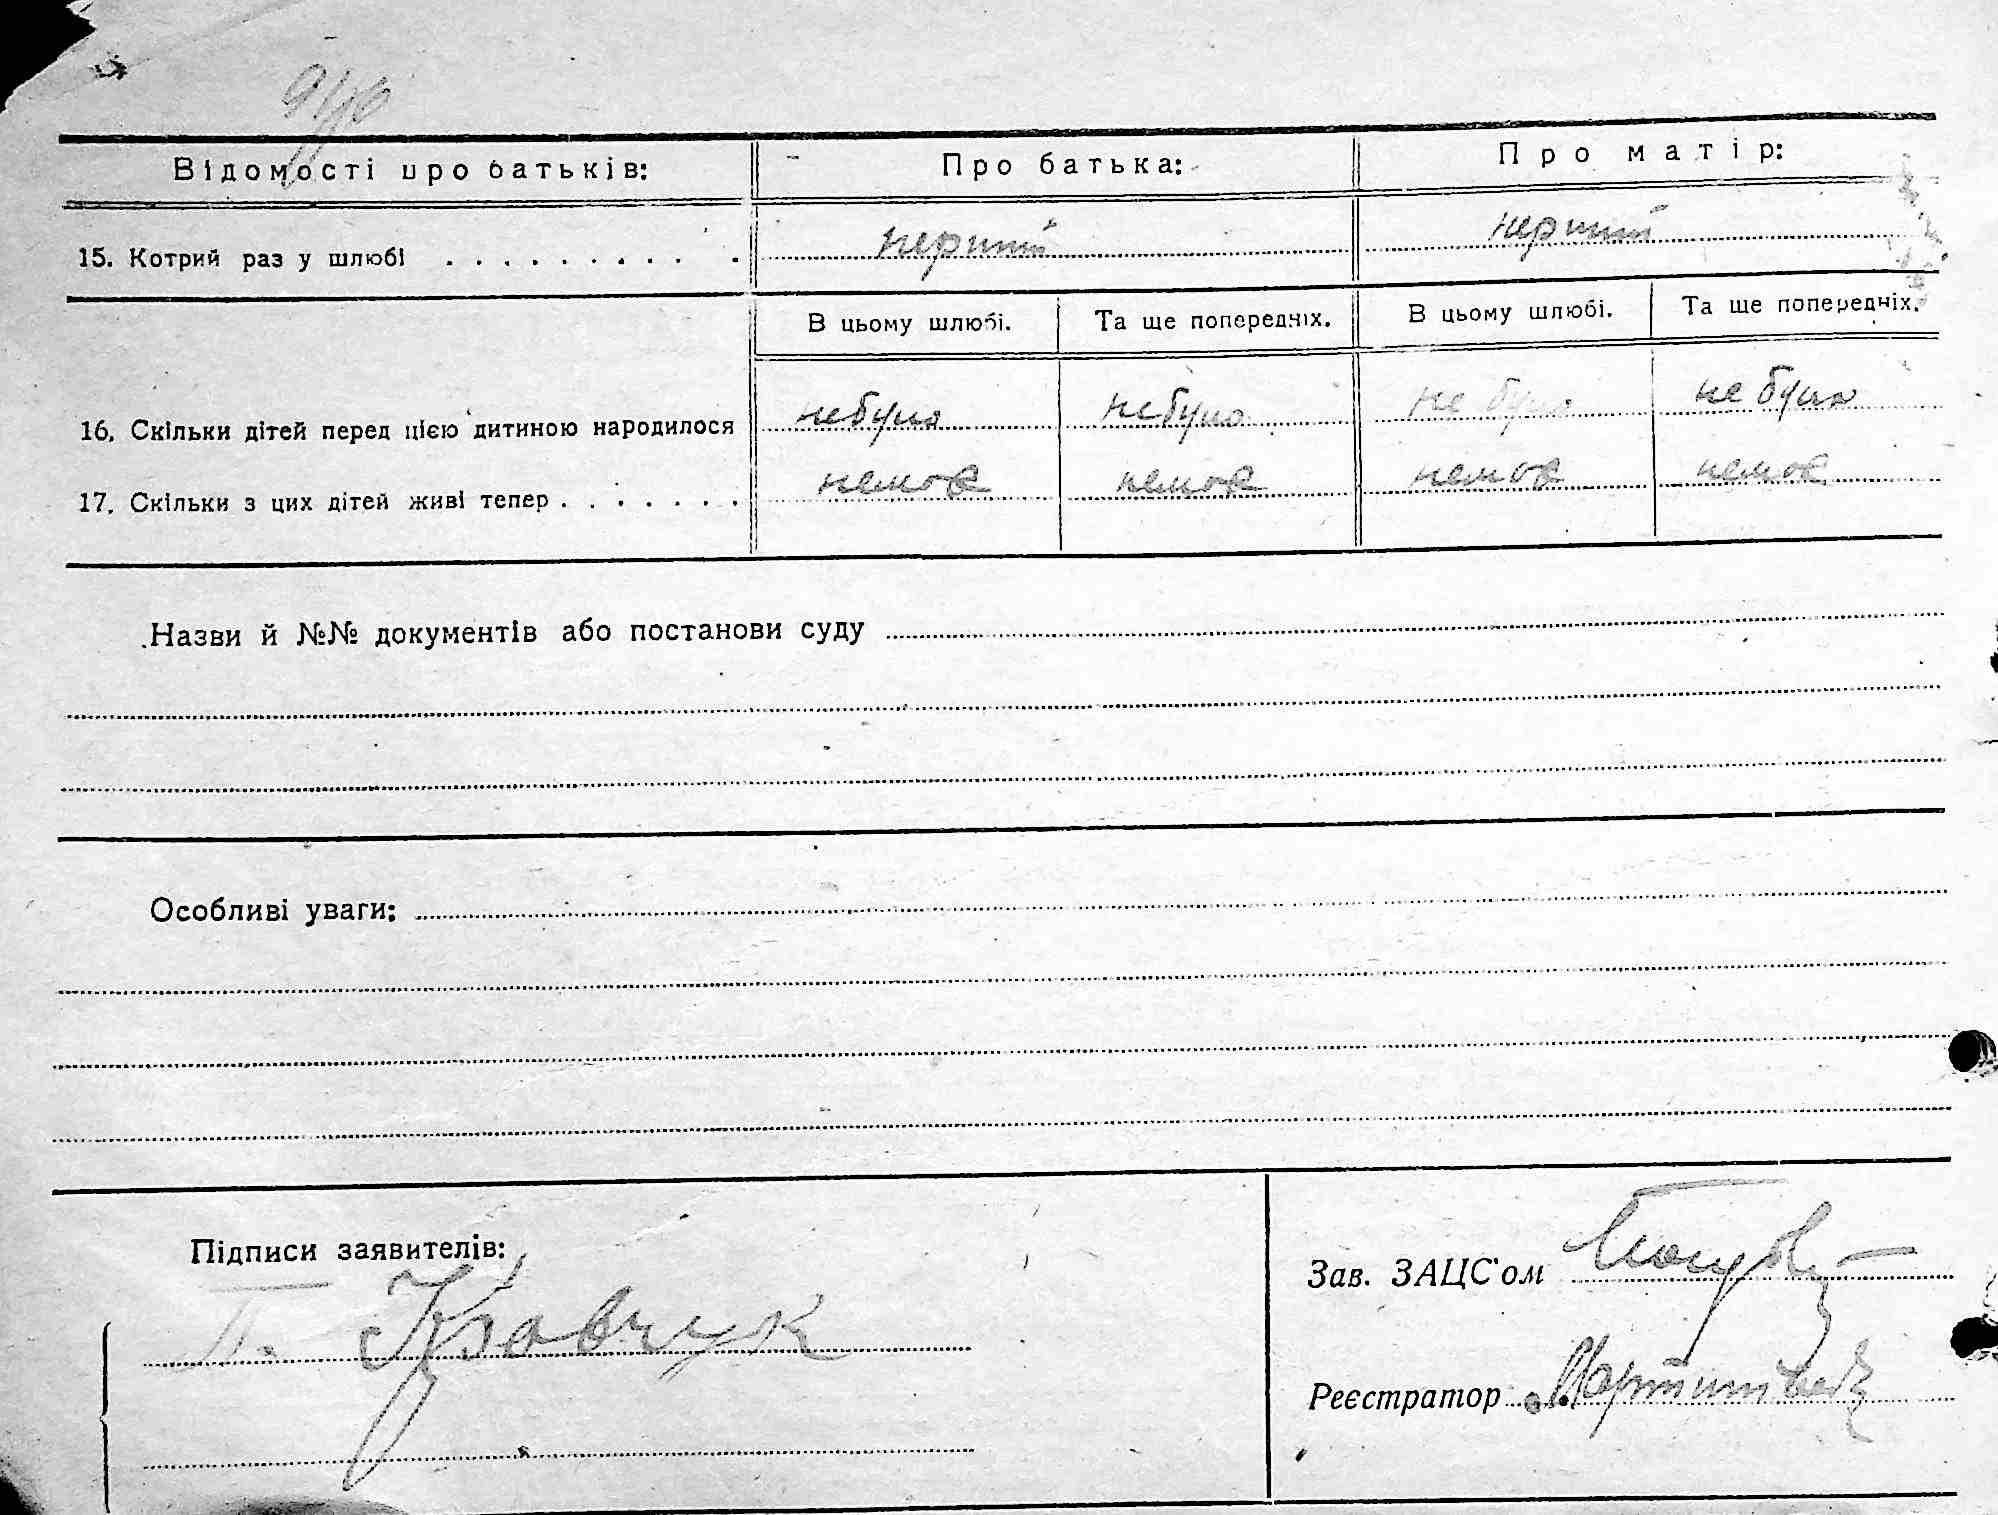 Відомості про батьків: Про батька: Про матір:
15. Котрий раз у шлюбі . . . . . . . . . . перший перший
В цьому шлюбі. Та ще попередніх. В цьому шлюбі. Та ще попередніх.
16. Скільки дітей перед цією дитиною народилося небуло небуло не було не було
17. Скільки з цих дітей живі тепер . . . . . . . немає немає немає немає
Назви й №№ документів або постанови суду
Особливі уваги:
Підписи заявителів:
Кравчук
Зав. ЗАЦС'ом
Реєстратор